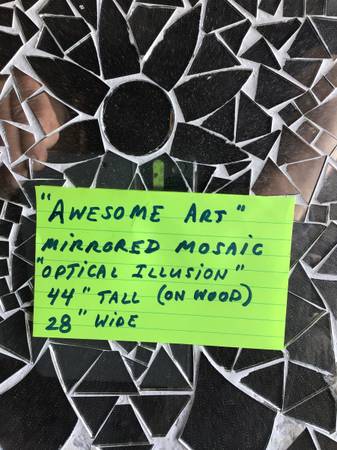 "AWESOME ART"
MIRRORED MOSAIC
"OPTICAL ILLUSION"
44" TALL (ON WOOD)
28" WIDE